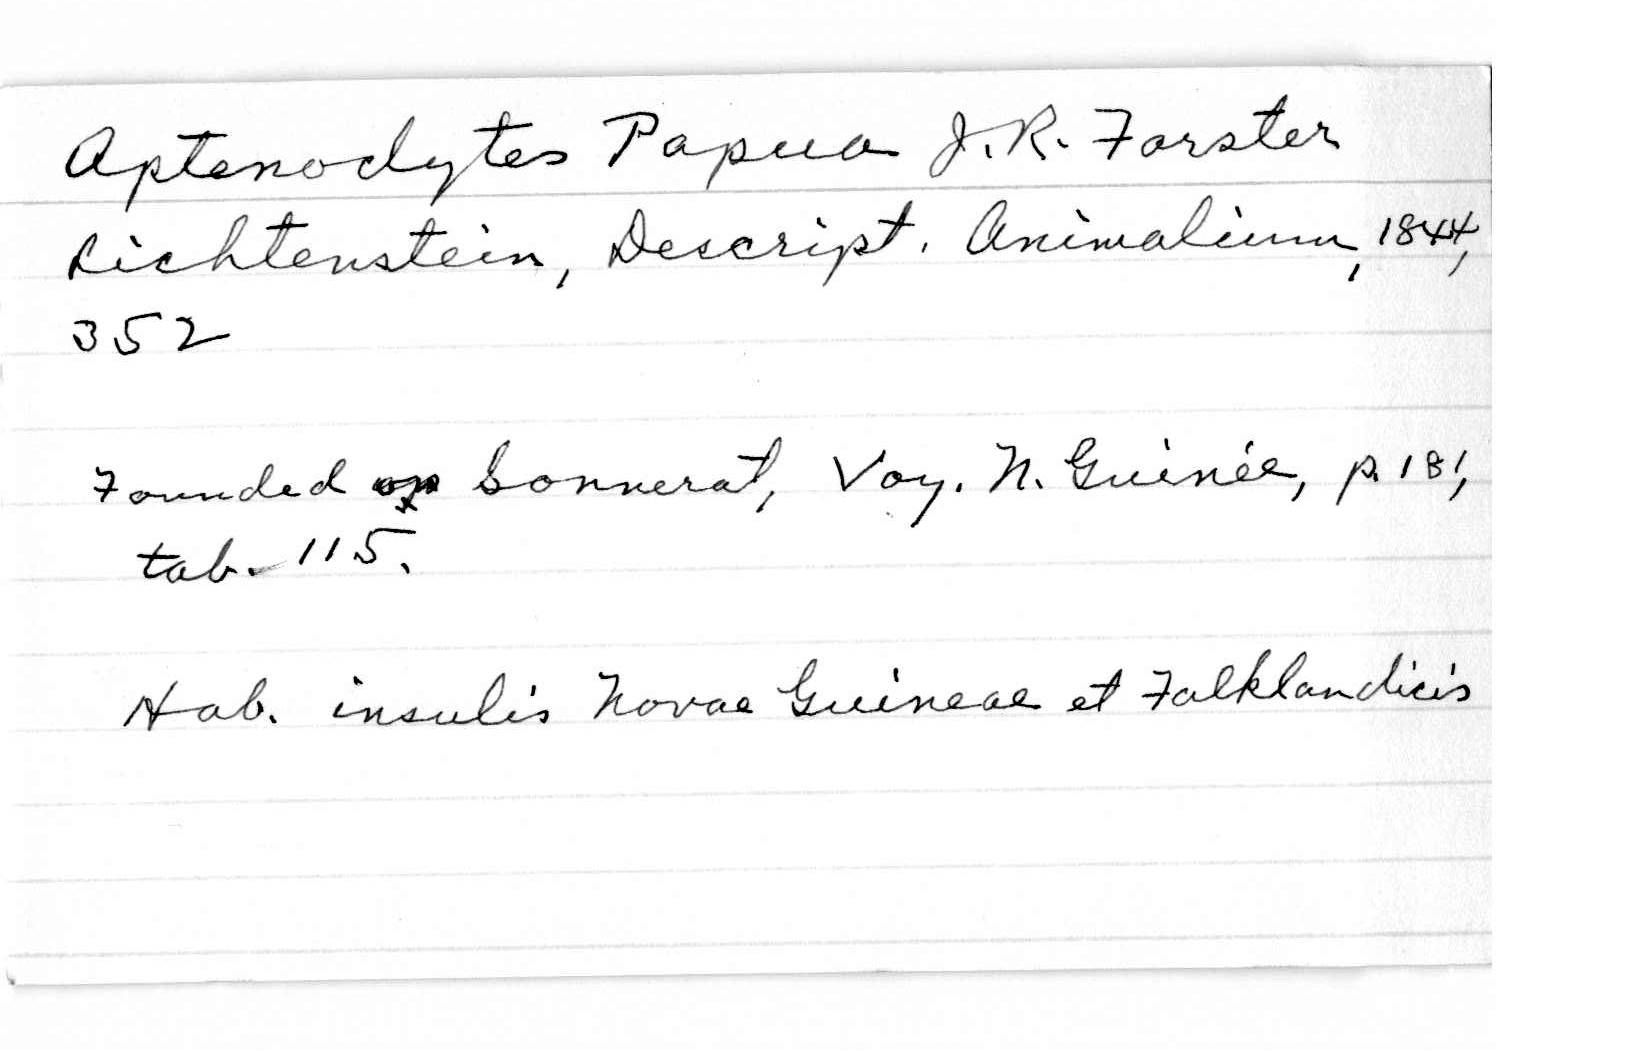 Aptenodytes Papua J.R. Forster
Lichtenstein, Descript. Animalium, 1844,
352
Founded on Sonnerat, Voy. N. Guinée, p. 181,
tab. 115.
Hab. insulis Novae Guineae et Falklandicis